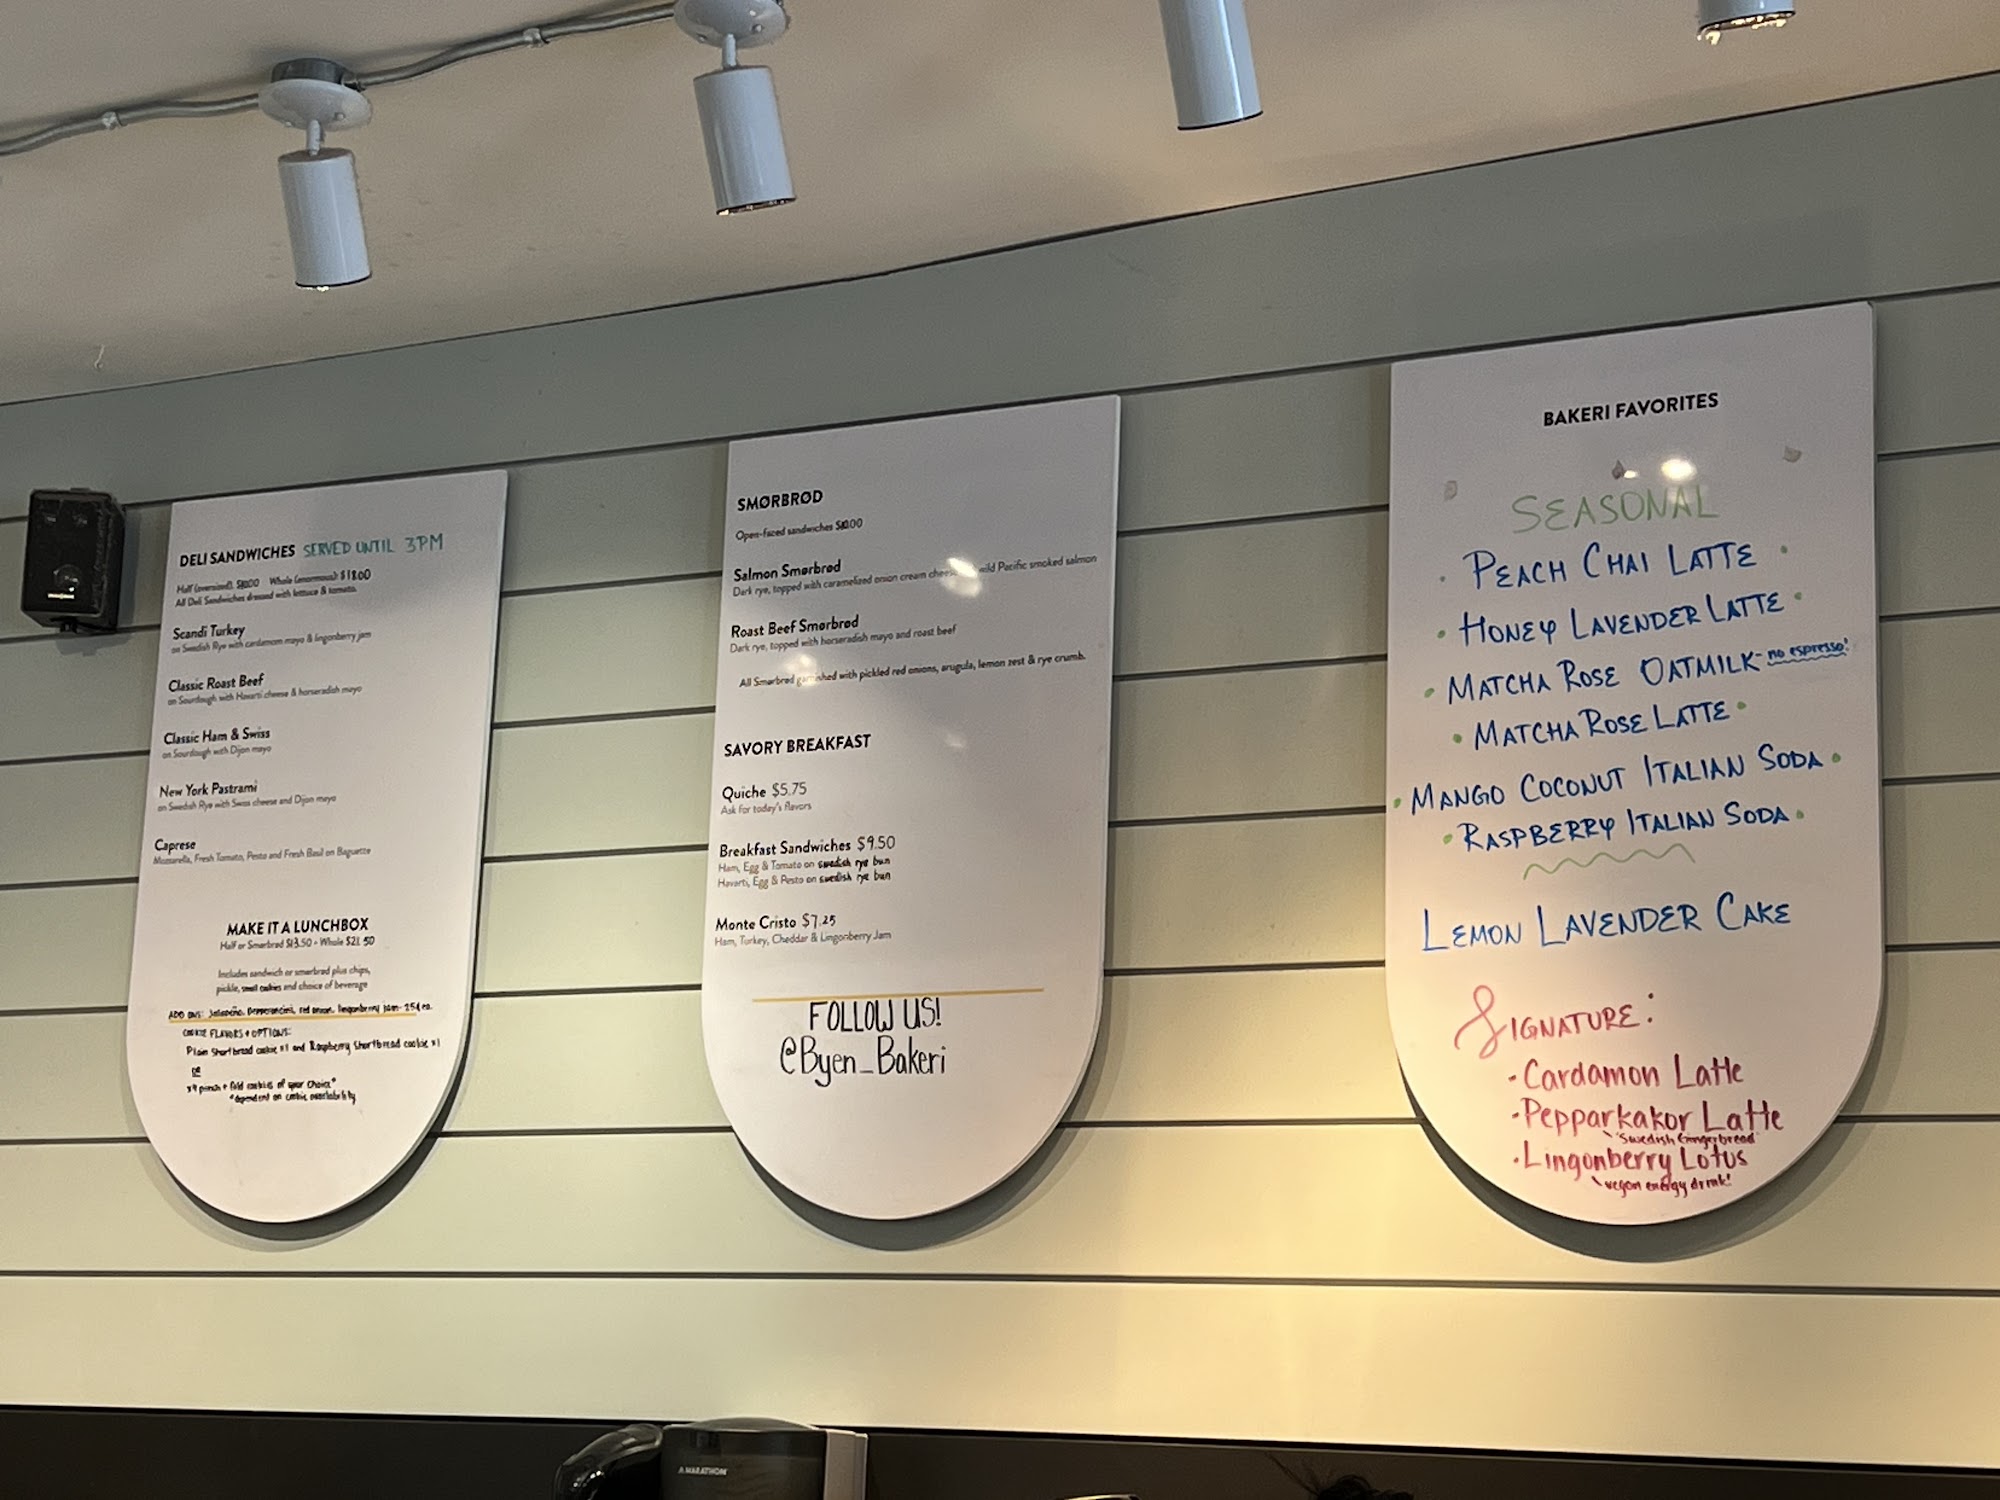 DELI SANDWICHES SERVED UNTIL 3PM
Half (oversized): $10.00 Whole (enormous): $18.00
All Deli Sandwiches dressed with lettuce & tomato.
Scandi Turkey
on Swedish Rye with cardamom mayo & lingonberry jam
Classic Roast Beef
on Sourdough with Havarti cheese & horseradish mayo
Classic Ham & Swiss
on Sourdough with Dijon mayo
New York Pastrami
on Swedish Rye with Swiss cheese and Dijon mayo
Caprese
Mozzarella, Fresh Tomato, Pesto and Fresh Basil on Baguette
MAKE IT A LUNCHBOX
Half or Smørbrød $13.50 • Whole $21.50
Includes sandwich or smørbrød plus chips,
pickle, small cookies and choice of beverage
ADD ONS: Jalapeño, Pepperoncini, red onion, lingonberry jam - 25¢ ea.
COOKIE FLAVORS + OPTIONS:
Plain Shortbread cookie x1 and Raspberry Shortbread cookie x1
OR
cookies of your choice*
*dependent on cookie availability
SMØRBRØD
Open-faced sandwiches $10.00
Salmon Smørbrød
Dark rye, topped with caramelized onion cream cheese wild Pacific smoked salmon
Roast Beef Smørbrød
Dark rye, topped with horseradish mayo and roast beef
All Smørbrød garnished with pickled red onions, arugula, lemon zest & rye crumb.
SAVORY BREAKFAST
Quiche $5.75
Ask for today's flavors
Breakfast Sandwiches $9.50
Ham, Egg & Tomato on swedish rye bun
Havarti, Egg & Pesto on swedish rye bun
Monte Cristo $7.25
Ham, Turkey, Cheddar & Lingonberry Jam
FOLLOW US!
@Byen_Bakeri
BAKERI FAVORITES
SEASONAL
• PEACH CHAI LATTE •
• HONEY LAVENDER LATTE •
• MATCHA ROSE OATMILK - no espresso!
• MATCHA ROSE LATTE •
• MANGO COCONUT ITALIAN SODA •
• RASPBERRY ITALIAN SODA •
LEMON LAVENDER CAKE
SIGNATURE:
• Cardamon Latte
• Pepparkakor Latte
\ "Swedish Gingerbread"
• Lingonberry Lotus
\ vegan energy drink!
A MARATHON